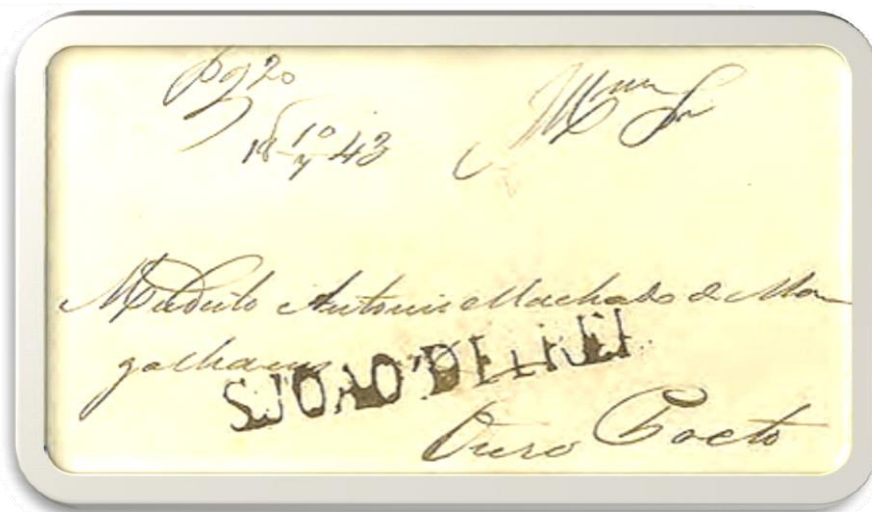 pg 20
18 10/7 43
Illmo Sr
Antonio Machado de Ma
galhaens
S.JOAO'DELREI
Ouro Preto